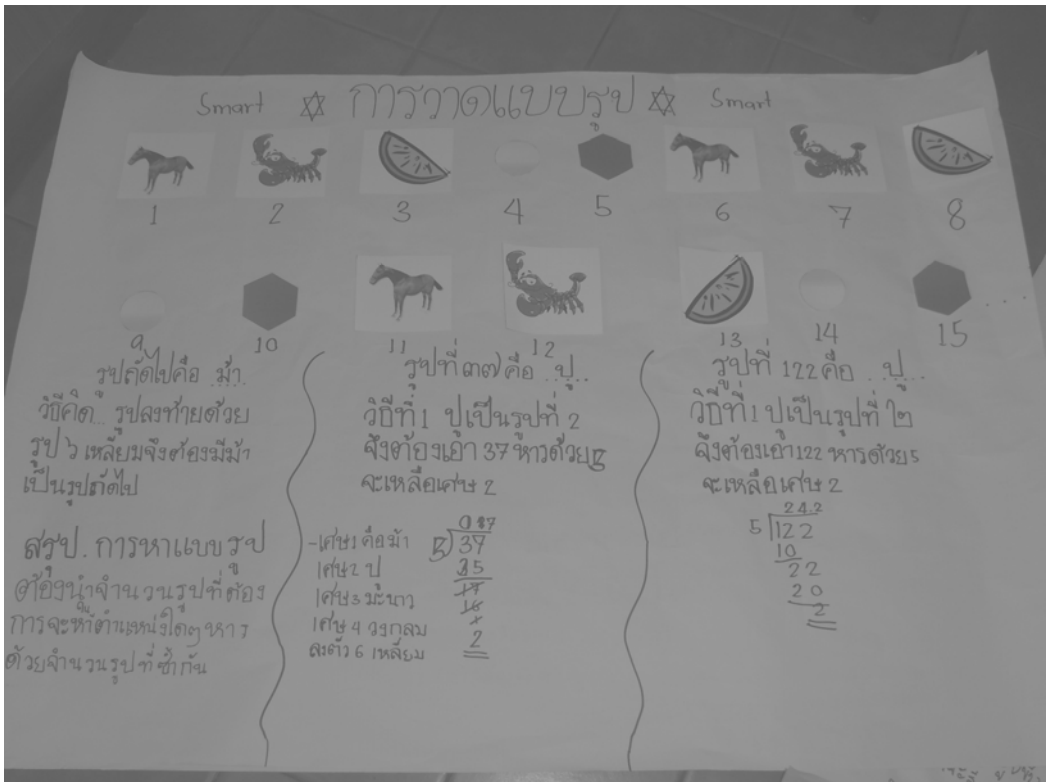 Smart ✡ การวาดแบบรูป ✡ Smart
1 2 3 4 5 6 7 8
9 10 11 12 13 14 15 ...
รูปถัดไปคือ ..ม้า..
วิธีคิด... รูปลงท้ายด้วย
รูป ๖ เหลี่ยมจึงต้องมีม้า
เป็นรูปถัดไป
สรุป . การหาแบบรูป
ต้องนำจำนวนรูปที่ต้อง
การจะหาตำแหน่งใดๆ หาร
ด้วยจำนวนรูปที่ซ้ำกัน
รูปที่ ๓๗ คือ ..ปู...
วิธีที่1 ปูเป็นรูปที่ 2
จึงต้องเอา 37 หารด้วย 5
จะเหลือเศษ 2
-เศษ1 คือม้า
เศษ2 ปู
เศษ3 มะนาว
เศษ 4 วงกลม
ลงตัว 6 เหลี่ยม
37
2
รูปที่ 122 คือ ..ปู..
วิธีที่1 ปูเป็นรูปที่ ๒
จึงต้องเอา 122 หารด้วย 5
จะเหลือเศษ 2
24.2
5 122
10
22
20
2